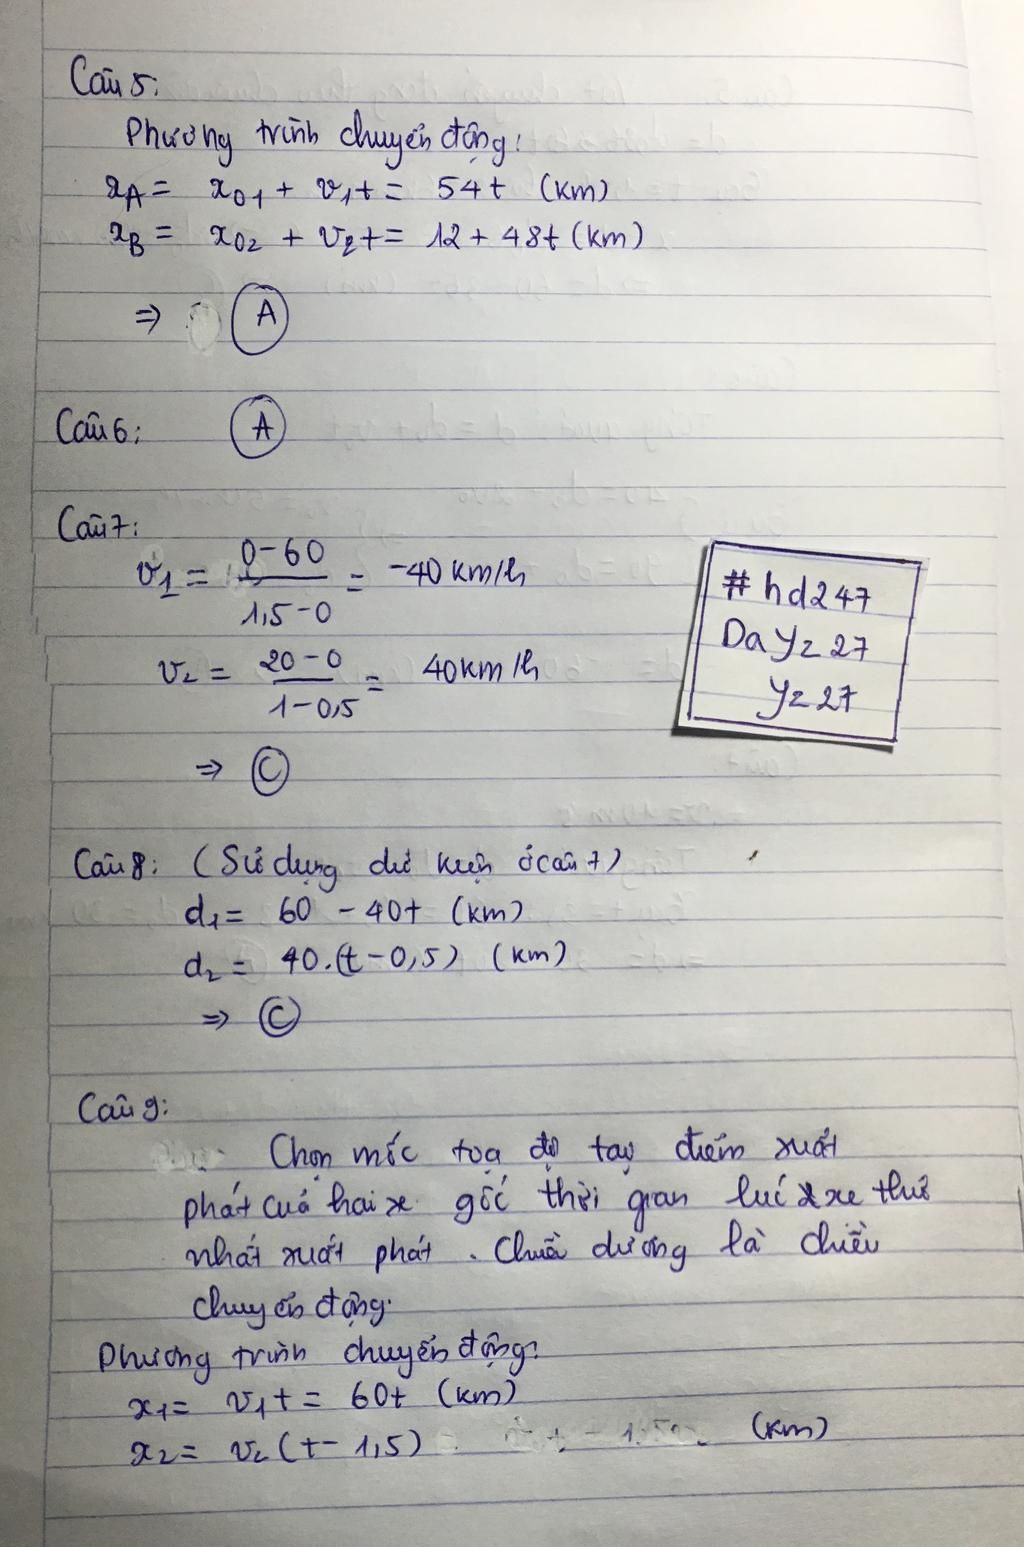 Câu 5:
Phương trình chuyển động:
xA = x01 + v1t = 54t (km)
xB = x02 + v2t = 12 + 48t (km)
⇒ A
Câu 6: A
Câu 7:
v1 = (0-60)/(1,5-0) = -40 km/h
v2 = (20-0)/(1-0,5) = 40km/h
⇒ C
#hd247
DaYz27
Yz27
Câu 8: (Sử dụng dữ kiện ở câu 7)
d1 = 60 - 40t (km)
d2 = 40.(t-0,5) (km)
⇒ C
Câu 9:
Chọn mốc toạ độ tại điểm xuất
phát của hai xe. gốc thời gian lúc xe thứ
nhất xuất phát. Chiều dương là chiều
chuyển động.
Phương trình chuyển động:
x1 = v1t = 60t (km)
x2 = v2(t-1,5) (km)